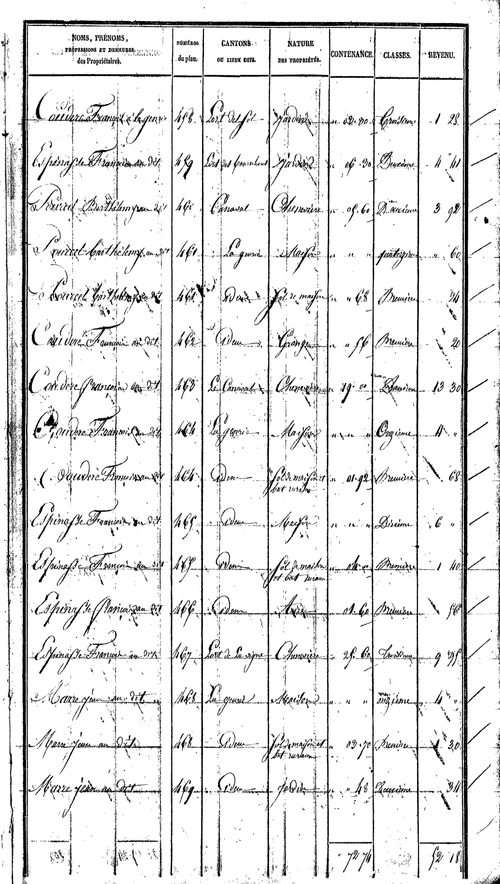 NOMS, PRÉNOMS, PROFESSIONS ET DEMEURES des Propriétaires. NUMÉROS du plan. CANTONS OU LIEUX DITS. NATURE DES PROPRIÉTÉS. CONTENANCE. CLASSES. REVENU.
Coudere François 458 Jardin 02.20 Troisième 1 28
Espinasse François au dit 459 Jardin 06.30 Deuxième 4 41
Pourcel Barthélemy au dit 460 Chenevière 05.60 Deuxième 3 92
Pourcel Barthélemy au dit 461 La guerie Maison " " " quatorzième " 60
Pourcel Barthélemy au dit 461 idem Sol de maison " " 68 Première 34
Coudere François au dit 462 idem Grange " " 56 Première 20
Coudere François au dit 463 Chenevière 19 00 Deuxième 13 30
Coudere François au dit 464 La guerie Maison " " " Onzième 4 "
Coudere François au dit 464 idem Sol de maison et bat rural 01.92 Première " 68
Espinasse François au dit 465 idem Maison " " " Dixième 6 "
Espinasse François au dit 465 idem Sol de maison et bat rural 04 00 Première 1 40
Espinasse François au dit 466 idem Aire 01.60 Première 56
Espinasse François au dit 467 Lort de La vigne Chenevière 25.60 Troisième 9 35
Marre jean au dit 468 La guerie Maison " " " onzième 4 "
Marre jean au dit 468 idem Sol de maison et bat rural 03.70 Première 1 30
Marre jean au dit 469 idem Jardin " " 48 Deuxième " 34
72 74 52 18